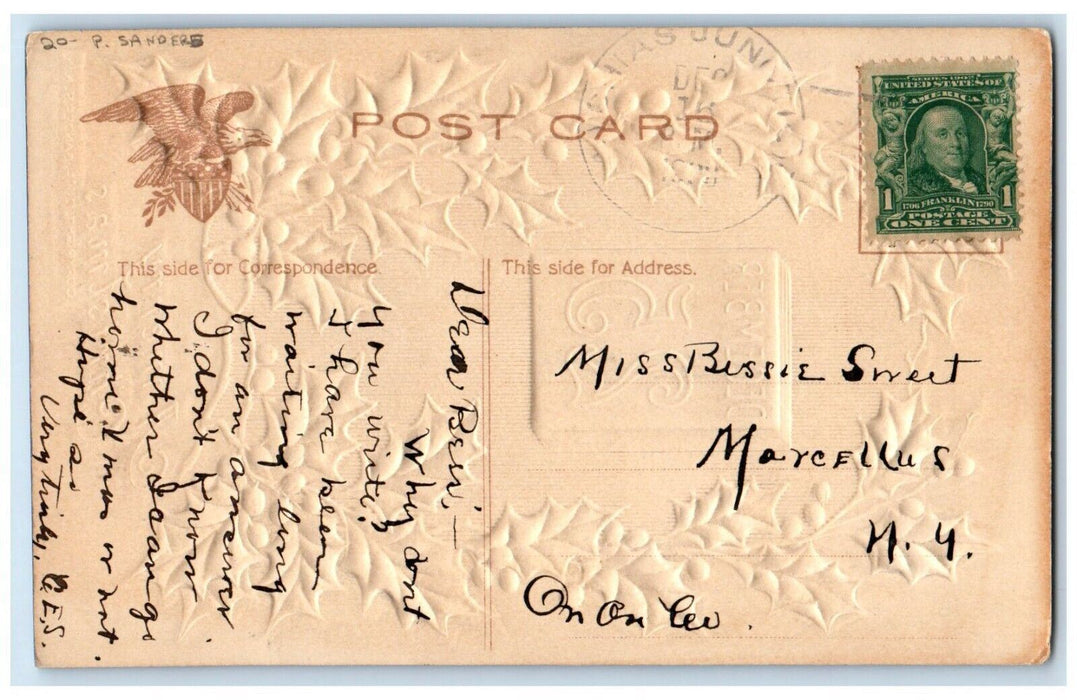 20- P. SANDERS
POST CARD
JUN
DEC
SERIES 1902
UNITED STATES OF
AMERICA
1 1
1706 FRANKLIN 1790
POSTAGE
ONE CENT
This side for Correspondence.
This side for Address.
Dear Bess,—
Why don't
you write?
I have been
waiting long
for an answer
I don't know
whether I can go
home Xmas or not.
Hope so
Very truly, C.E.S.
Miss Bessie Sweet
Marcellus
N. Y.
On On Co.